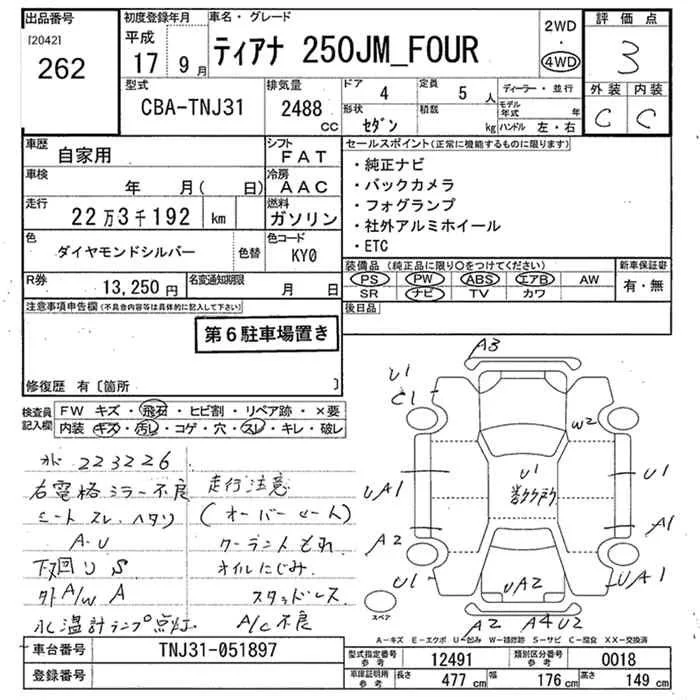 出品番号
[2042]
262
初度登録年月
平成
17 9月
車名・グレード
ティアナ 250JM_FOUR
2WD
・
4WD
評価点
3
外装 内装
C C
型式
CBA-TNJ31
排気量
2488 cc
ドア 4
定員 5 人
形状 セダン
積数 kg
ディーラー・並行
モデル年式 年
ハンドル 左・右
車歴 自家用
シフト FAT
車検 年 月( 日)
冷房 AAC
走行 22万3千192 km
燃料 ガソリン
色 ダイヤモンドシルバー 色替
色コード KY0
R券 13,250円
名変通知期限 月 日
セールスポイント(正常に機能するものに限ります)
・純正ナビ
・バックカメラ
・フォグランプ
・社外アルミホイール
・ETC
装備品 (純正品に限り○をつけてください)
PS PW ABS エアB AW
SR ナビ TV カワ
新車保証書
有・無
後日品
注意事項申告欄(不具合内容等は具体的に記入して下さい)
第6駐車場置き
修復歴 有〔箇所 〕
検査員記入欄
FW キズ・飛石・ヒビ割・リペア跡・×要
内装 キズ・汚し・コゲ・穴・スレ・キレ・破レ
223226
右電格ミラー不良
シートスレ、ヘタリ
A-U
下回りS
外A/W A
水温計ランプ点灯
走行注意
(オーバーヒート)
クーラントもれ
オイルにじみ
スタッドレス
A/C不良
A3
U1
C1
W2
U1
UA1
U1
A2
A1
U1
UA2
UA1
A2 A4 U2
スペア
A-キズ E-エクボ U-凹み W-補修跡 S-サビ C-腐食 XX-交換済
車台番号 TNJ31-051897
登録番号
型式指定番号 参考 12491
類別区分番号 参考 0018
車庫証明用 参考 長さ 477 cm 幅 176 cm 高さ 149 cm